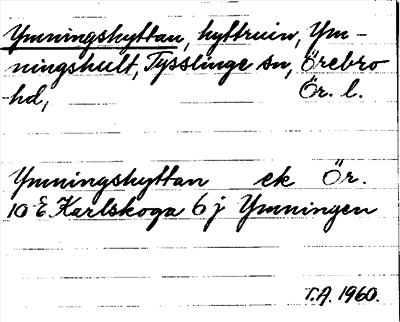 Ymningshyttan, hyttruin, Ym-
ningshult, Tysslinge sn, Örebro
hd, Ör. l.
Ymningshyttan ek Ör.
10 E Karlskoga 6 j Ymningen
T.A. 1960.